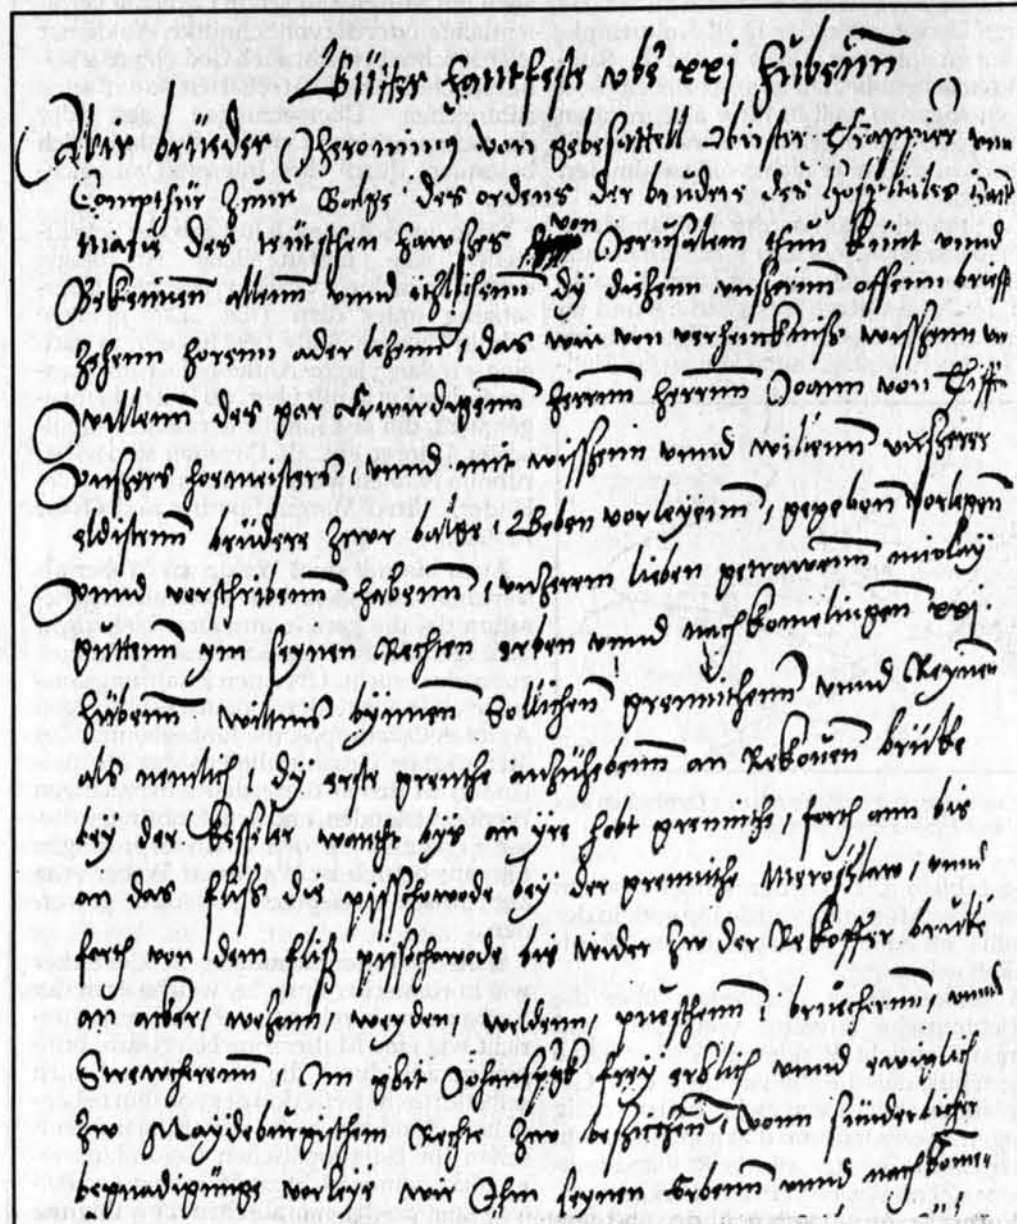 hantfeste vbr xxj hubenn
Wir bruder Jheronimus von gebesattell Obirster Trappier vnn
Compthur zcum des ordens der brudere des hospitales Sand
Marie des teutschen hawszes von Jerusalem thun kunt vnnd
Bekennen allenn vnnd itzlichenn dy dieszenn vnszernn offenn brieff
zehenn horenn ader leszenn / das wir von verhencknisz wisszenn vn
willenn des gar Erwirdigenn herrnn herrnn Joann von Tiffen
Vnszers homeisters / vnnd mit wisszenn vnnd willenn vnszerer
eldistenn brudere zcwr balge / Geben vorleyenn / gegeben vorlegen
Vnnd vorschribenn habenn / vnszerem lieben getrawenn nicley
yn seynen Rechten erben vnnd nachkomelingen xxj.
hubenn bynnen sollichen grenniczenn vnnd Reynen
als nemlich / dy erste grenicze antzuhebenn an brucke
bey der an yre hobt grennitcze forth ann bis
an das flisz bey der grennicze vnnd
forth von dem flisz bis wider zcw der brucke
an acker / weszenn / weyden / weldenn / puesschenn / bruecherenn vnnd
Jm gbit frey erblich vnnd ewiglich
zcw Magdeburgischem Rechte zcw besitczen / vonn sunderlicher
begnadigunge vorleye wir Jhm seynen Erbenn vnnd nachkomen